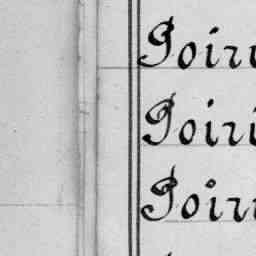 Poiri
Poiri
Poiri